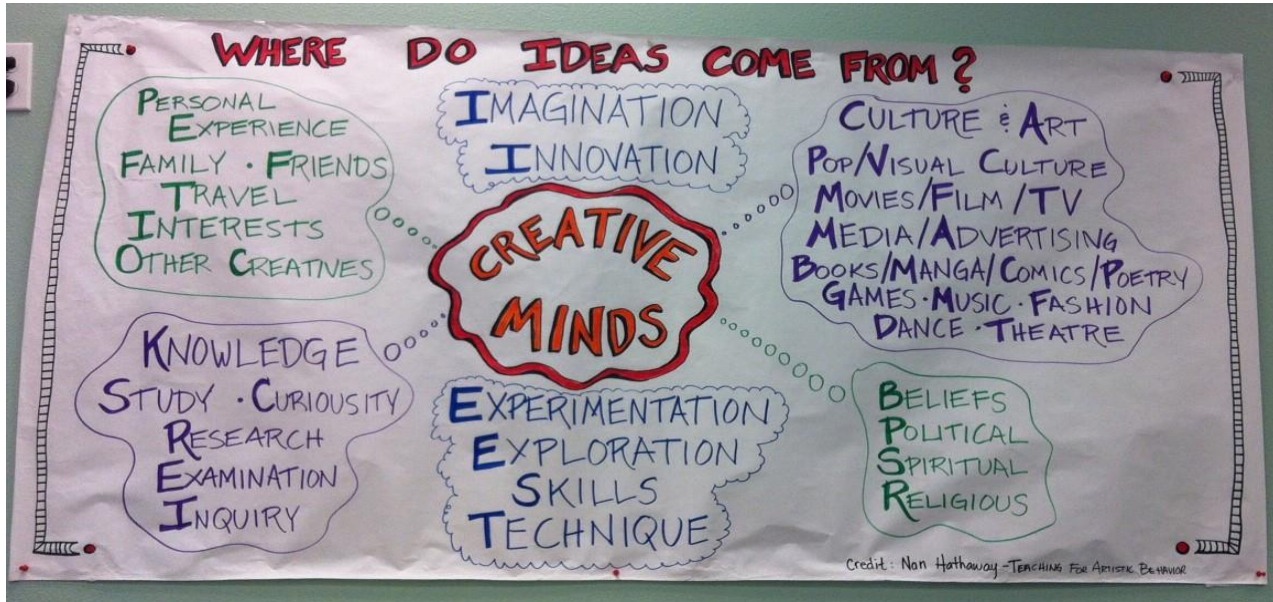 WHERE DO IDEAS COME FROM?
PERSONAL
EXPERIENCE
FAMILY · FRIENDS
TRAVEL
INTERESTS
OTHER CREATIVES
IMAGINATION
INNOVATION
CULTURE & ART
POP/VISUAL CULTURE
MOVIES/FILM/TV
MEDIA/ADVERTISING
BOOKS/MANGA/COMICS/POETRY
GAMES · MUSIC · FASHION
DANCE · THEATRE
CREATIVE
MINDS
KNOWLEDGE
STUDY · CURIOUSITY
RESEARCH
EXAMINATION
INQUIRY
EXPERIMENTATION
EXPLORATION
SKILLS
TECHNIQUE
BELIEFS
POLITICAL
SPIRITUAL
RELIGIOUS
Credit: Nan Hathaway - TEACHING FOR ARTISTIC BEHAVIOR